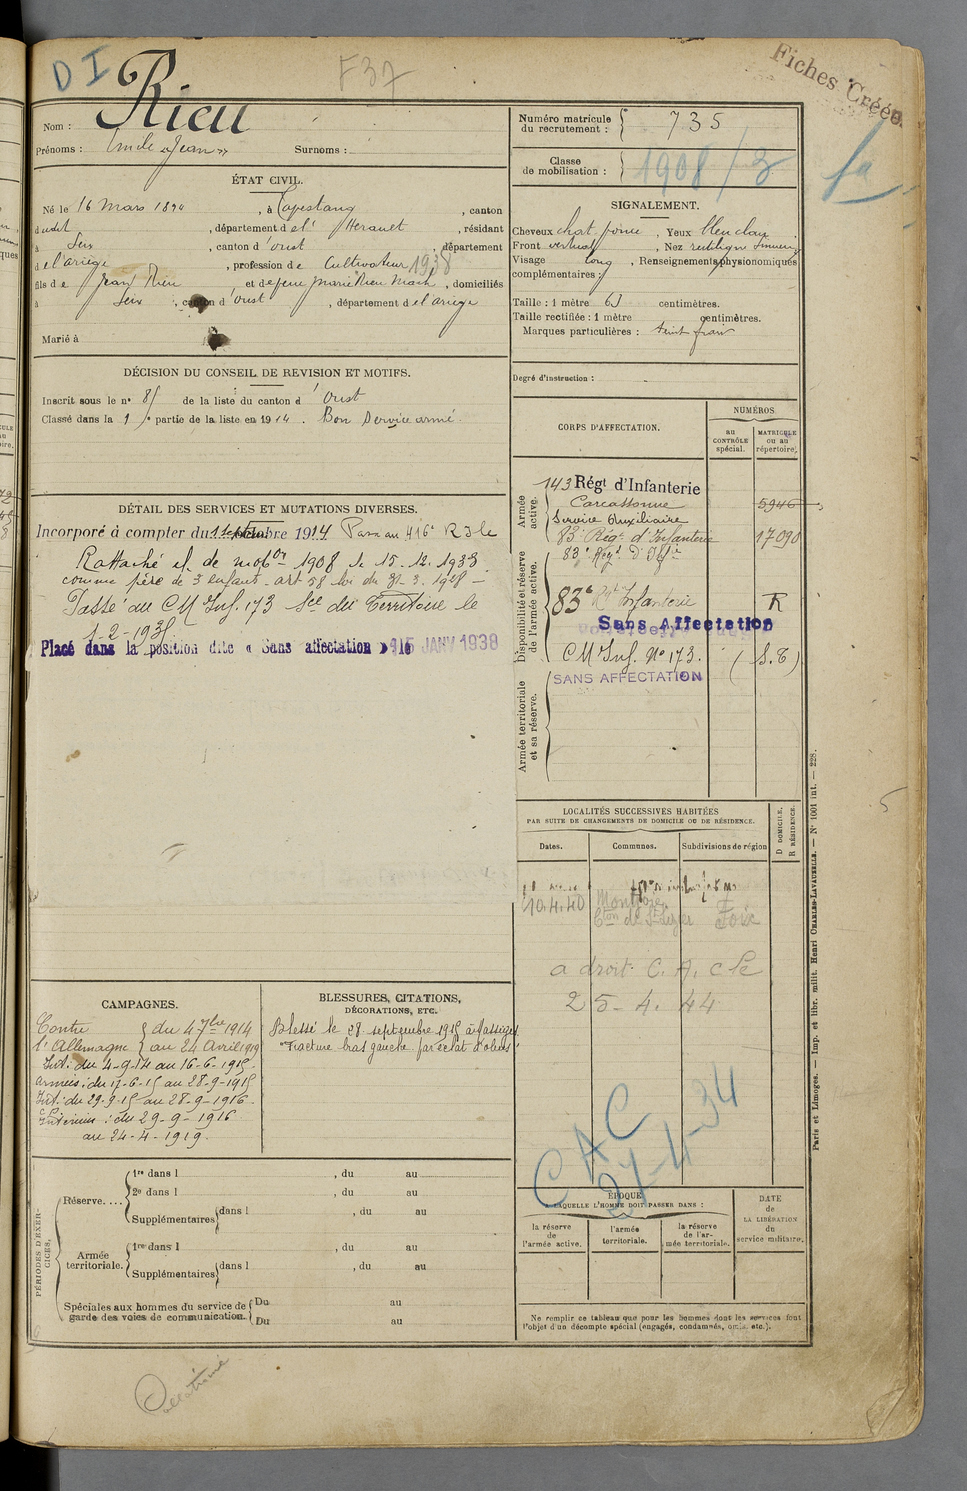 D I
F37
Fiches Créées
Nom : Rieu
Prénoms : Emile Jean Surnoms :
Numéro matricule du recrutement : 735
Classe de mobilisation : 1908/3
ÉTAT CIVIL.
Né le 16 mars 1894, à Capestang, canton
dudit, département de l'Herault, résidant
à Seix, canton d'Oust, département
de l'ariège, profession de Cultivateur 1938
fils de Jean Rieu et de feue Marie, domiciliés
à Seix, canton d'Oust, département de l'ariège
Marié à
SIGNALEMENT.
Cheveux chat. foncé, Yeux bleu clair
Front vertical, Nez rectiligne
Visage long, Renseignements physionomiques
complémentaires :
Taille : 1 mètre 65 centimètres.
Taille rectifiée : 1 mètre centimètres.
Marques particulières : teint
Degré d'instruction :
DÉCISION DU CONSEIL DE REVISION ET MOTIFS.
Inscrit sous le nº 85 de la liste du canton d'Oust
Classé dans la 1re partie de la liste en 1914. Bon Service armé.
CORPS D'AFFECTATION.
NUMÉROS
au CONTRÔLE spécial.
MATRICULE ou au répertoire.
Armée active.
143 Régt d'Infanterie
Carcassonne 5946
Service Auxiliaire
83e Régt d'Infanterie 17090
Disponibilité et réserve de l'armée active.
83e Régt d'Infie
83e Rt Infanterie R
Sans Affectation
C M Inf. Nº 173. (S.T)
Armée territoriale et sa réserve.
SANS AFFECTATION
DÉTAIL DES SERVICES ET MUTATIONS DIVERSES.
Incorporé à compter du septembre 1914 Passé au 416e
Rattaché cl. de mobon 1908 le 15.12.1933
comme père de 3 enfants. art 58 loi du 31-3-1928
Passé au C M Inf. 173 Sce du Territoire le
1-2-1935
Placé dans la position dite « Sans affectation » le 15 JANV 1938
LOCALITÉS SUCCESSIVES HABITÉES
PAR SUITE DE CHANGEMENTS DE DOMICILE OU DE RÉSIDENCE.
D DOMICILE, R RÉSIDENCE.
Dates. Communes. Subdivisions de région
10.4.40
Cton de St Lizier Foix
a droit C. A. cle
25-4.44
CAC
27-4-34
CAMPAGNES.
Contre l'Allemagne { du 4 7bre 1914
au 24 Avril 1919
Int: du 4-9-14 au 16-6-1915.
Armées: du 17-6-15 au 28-9-1915
Int: du 29-9-15 au 28-9-1916.
Intérieur : du 29-9-1916
au 24-4-1919.
BLESSURES, CITATIONS,
DÉCORATIONS, ETC.
Blessé le 28 septembre 1915 à Massiges
"Fracture bras gauche par éclat d'obus"
PÉRIODES D'EXERCICES.
Réserve....
1re dans l , du au
2e dans l , du au
Supplémentaires { dans l , du au
Armée territoriale.
1re dans l , du au
Supplémentaires { dans l , du au
Spéciales aux hommes du service de garde des voies de communication.
Du au
Du au
ÉPOQUE
A LAQUELLE L'HOMME DOIT PASSER DANS :
la réserve de l'armée active.
l'armée territoriale.
la réserve de l'armée territoriale.
DATE de LA LIBÉRATION du service militaire.
Ne remplir ce tableau que pour les hommes dont les services font
l'objet d'un décompte spécial (engagés, condamnés, omis, etc.).
Paris et Limoges. — Imp. et libr. milit. Henri CHARLES-LAVAUZELLE. — Nº 1001 int. — 228.